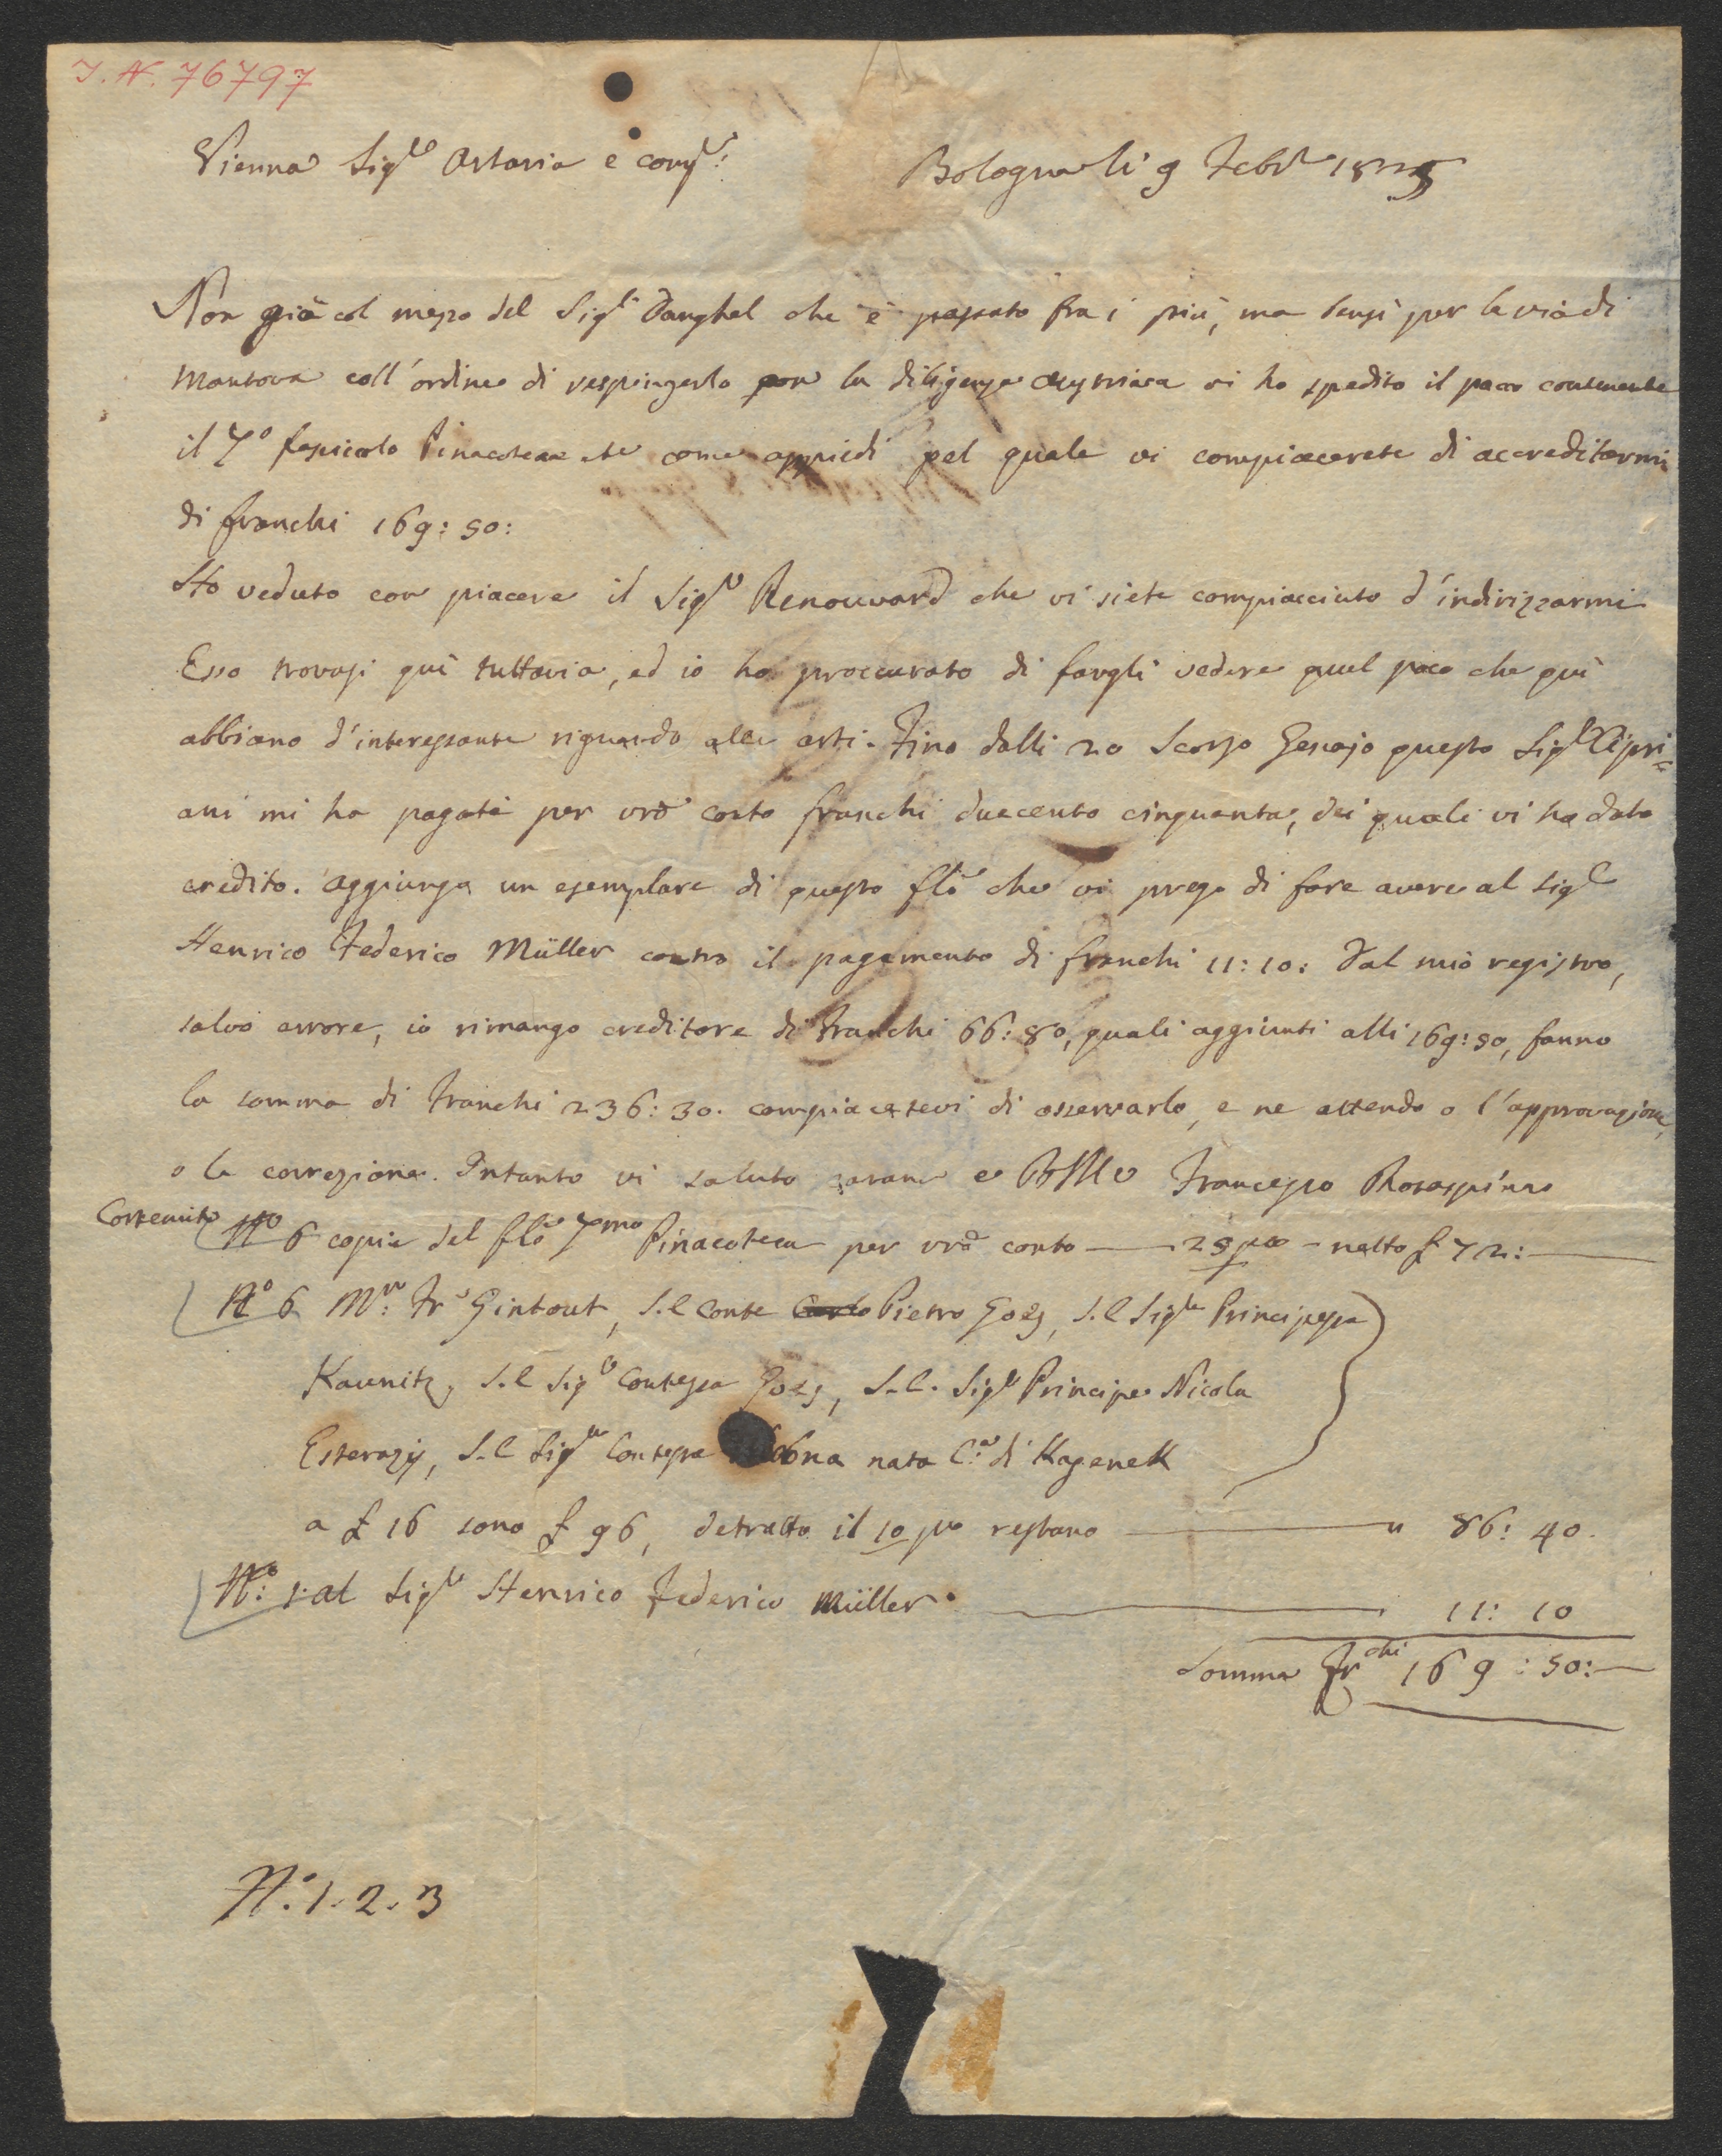 I. N. 76797
Vienna Sigri Artaria e compi:
Bologna li 9 Febbr 1825
Non già col mezo del Sigr Danghel che è passato fra i più, ma bensì per la via di
Mantova coll'ordine di respingerlo per la diligenza vi ho spedito il paco contenente
il 7o fascicolo Pinacoteca etc come appiedi pel quale vi compiacerete di accreditarmi
di franchi 169:50:
Ho veduto con piacere il Sigr Renouvard che vi siete compiacciuto d'indirizzarmi
Esso trovasi quì tuttavia, ed io ho proccurato di fargli vedere quel poco che quì
abbiamo d'interessante riguardo alle arti. Fino dalli 20 Scorso Genajo questo Sigr Cipri=
ani mi ha pagati per vro conto franchi duecento cinquanta, dei quali vi ho dato
credito. Aggiungo un esemplare di questo flo che vi prego di fare avere al Sigr
Henrico Federico Müller contro il pagamento di franchi 11:10: Dal mio registro,
salvo errore, io rimango creditore di Franchi 66:80, quali aggiunti alli 169:50, fanno
la somma di Franchi 236:30. compiacetevi di osservarlo, e ne attendo o l'approvazione,
o la correzione. Intanto vi saluto e Francesco Rosaspina
Contenuto No 6 copie del flo 7mo Pinacoteca per vro conto — 25 pco - netto £ 72:—
No 6 Mr: Fr Gintout, S.E Conte Carlo Pietro Goës, S.E Sigra Principessa
Kaunitz, S.E Sigra Contessa Goës, S.E. Sigr Principe Nicola
Esterazÿ, S.E Sigra Contessa nata C.a di Kagenek
a £ 16 sono £ 96, detratto il 10 pco restano — " 86: 40.
No: 1. al Sigr Henrico Federico Müller. — 11: 10
Somma Frchi 169:50:—
No. 1. 2. 3